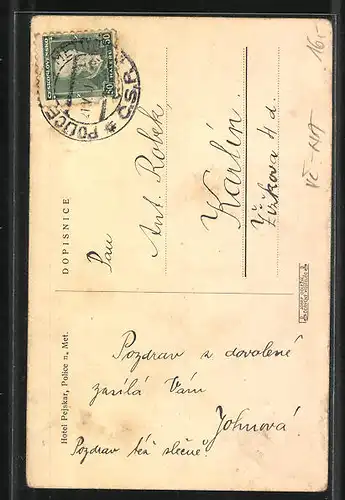 Hotel Pejskar, Police n. Met.
DOPISNICE
ČESKOSLOVENSKO
50 50
POLICE
Č.S.R.
Pan
Ant. Rolek,
Karlín.
Žižkova 4 a.
Pozdrav z dovolené
zasílá Vám
Johnová
Pozdrav též slečně.
16,-